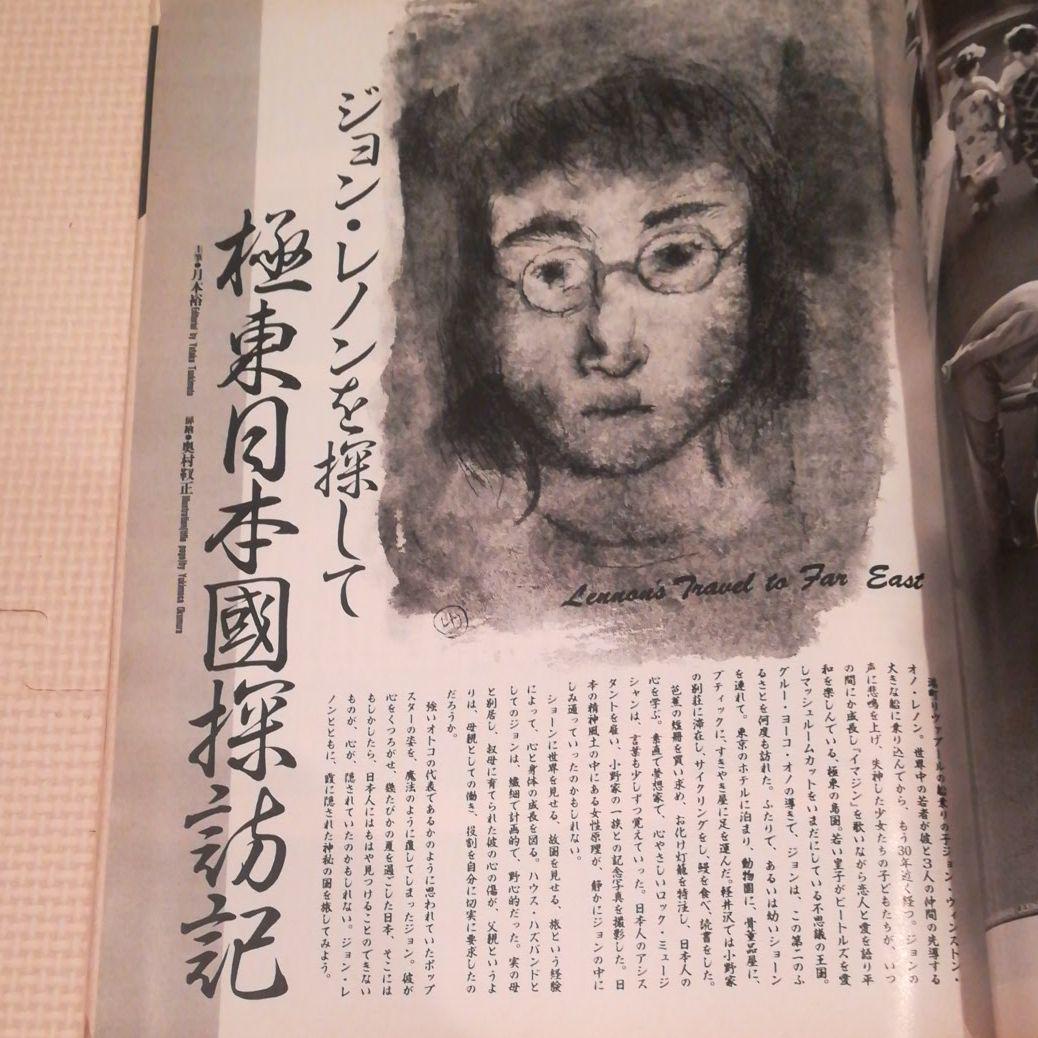 ジョン・レノンを探して
極東日本國探訪記
月本裕 Edited by Yutaka Tsukimoto
奥村靫正
Lennon's Travel to Far East
港町リヴァプールの船乗りの子ジョン・ウィンストン・
オノ・レノン。世界中の若者が彼と3人の仲間の先導する
大きな船に乗り込んでから、もう30年近く経つ。ジョンの
声に悲鳴を上げ、失神した少女たちの子どもたちが、いつ
の間にか成長し『イマジン』を歌いながら恋人と愛を語り平
和を楽しんでいる、極東の島国。若い皇子がビートルズを愛
しマッシュルームカットをいまだにしている不思議の王国。
グルー・ヨーコ・オノの導きで、ジョンは、この第二のふ
るさとを何度も訪れた。ふたりで、あるいは幼いショーン
を連れて。東京のホテルに泊まり、動物園に、骨董品屋に、
ブティックに、すきやき屋に足を運んだ。軽井沢では小野家
の別荘に滞在し、サイクリングをし、鰻を食べ、読書をした。
芭蕉の短冊を買い求め、お化け灯籠を特注し、日本人の
心を学ぶ。素直で夢想家で、心やさしいロック・ミュージ
シャンは、言葉も少しずつ覚えていった。日本人のアシス
タントを雇い、小野家の一族との記念写真を撮影した。日
本の精神風土の中にある女性原理が、静かにジョンの中に
しみ通っていったのかもしれない。
ショーンに世界を見せる、故国を見せる、旅という経験
によって、心と身体の成長を図る。ハウス・ハズバンドと
してのジョンは、繊細で計画的で、野心的だった。実の母
と別居し、叔母に育てられた彼の心の傷が、父親というよ
りは、母親としての働き、役割を自分に切実に要求したの
だろうか。
強いオトコの代表であるかのように思われていたポップ
スターの姿を、魔法のように覆してしまったジョン。彼が
心をくつろがせ、幾たびかの夏を過ごした日本、そこには
もしかしたら、日本人にはもはや見つけることのできない
ものが、心が、隠されていたのかもしれない。ジョン・レ
ノンとともに、霞に隠された神秘の国を旅してみよう。